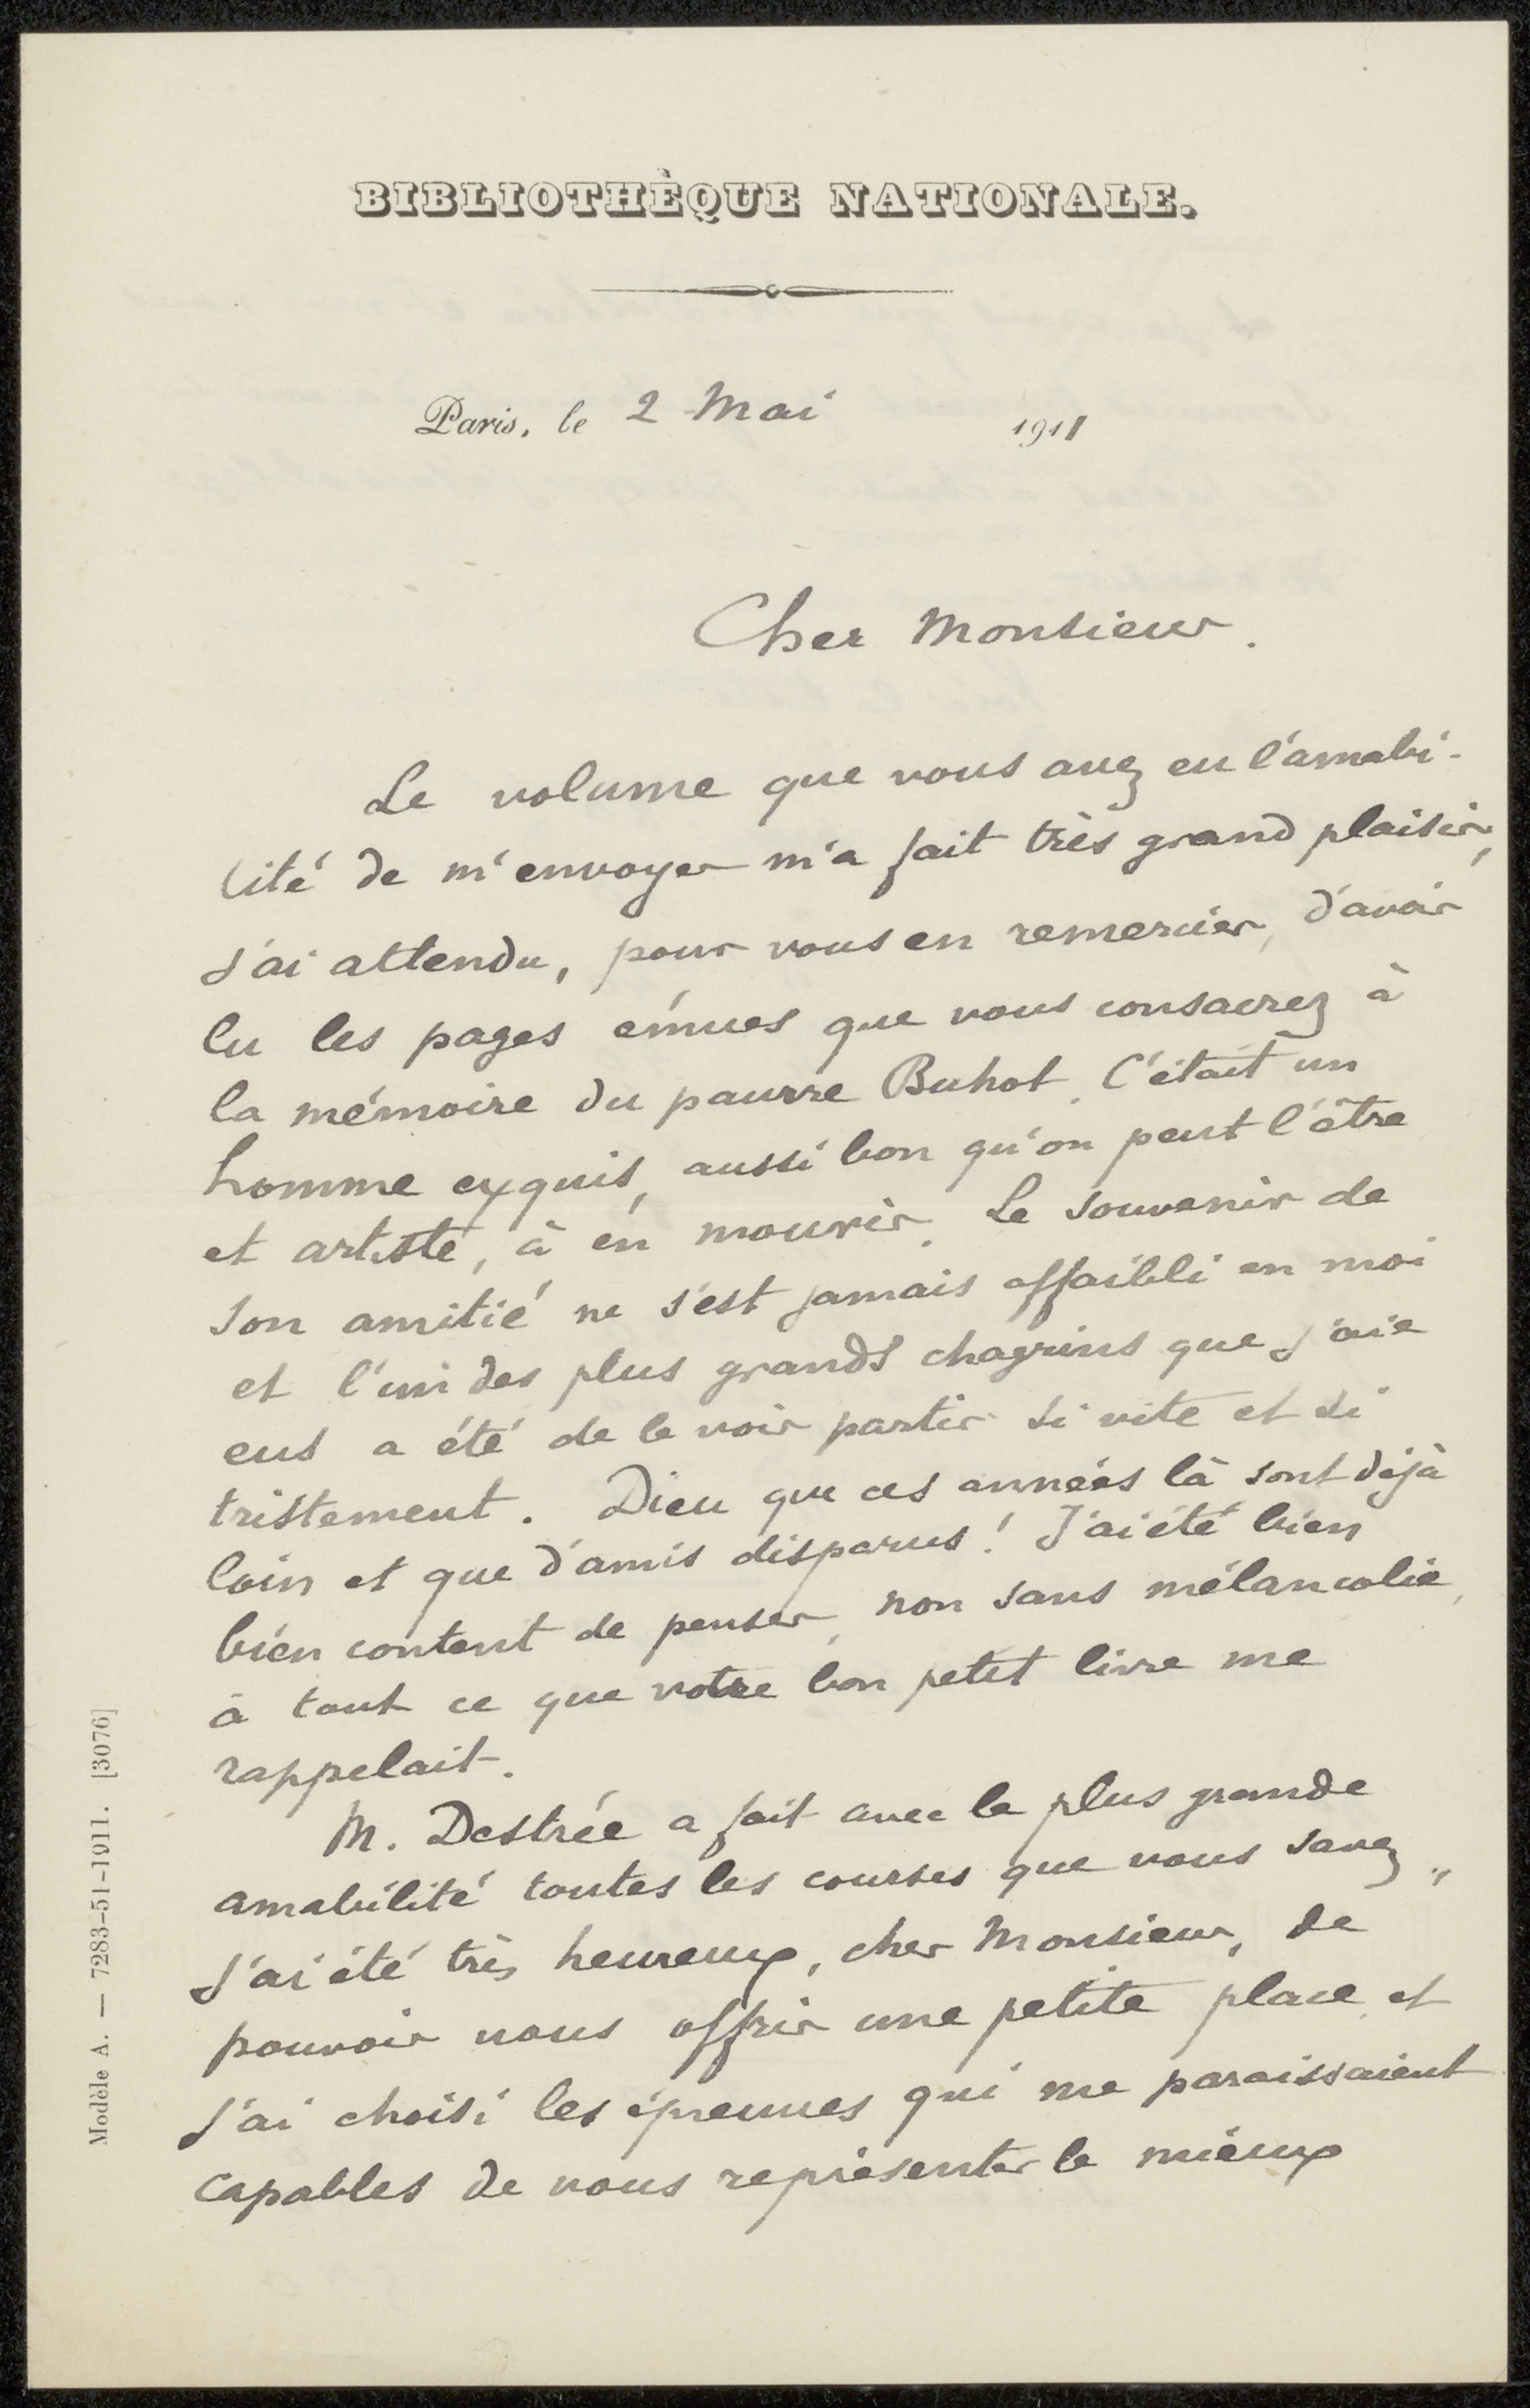 BIBLIOTHÈQUE NATIONALE.
Paris, le 2 Mai 1911
Cher Monsieur.
Le volume que vous avez eu l'amabi-
lité de m'envoyer m'a fait très grand plaisir,
J'ai attendu, pour vous en remercier, d'avoir
lu les pages émues que vous consacrez à
la mémoire du pauvre Buhot. C'était un
homme exquis, aussi bon qu'on peut l'être
et artiste, à en mourir. Le souvenir de
son amitié ne s'est jamais affaibli en moi
et l'un des plus grands chagrins que j'aie
eus a été de le voir partir si vite et si
tristement. Dieu que ces années là sont déjà
loin et que d'amis disparus! J'ai été bien
bien content de penser, non sans mélancolie,
à tout ce que votre bon petit livre me
rappelait.
M. Destrée a fait avec la plus grande
amabilité toutes les courses que vous savez,,
J'ai été très heureux, cher Monsieur, de
pouvoir vous offrir une petite place et
j'ai choisi les épreuves qui me paraissaient
capables de vous représenter le mieux
Modèle A. — 7283-51-1911. [3076]